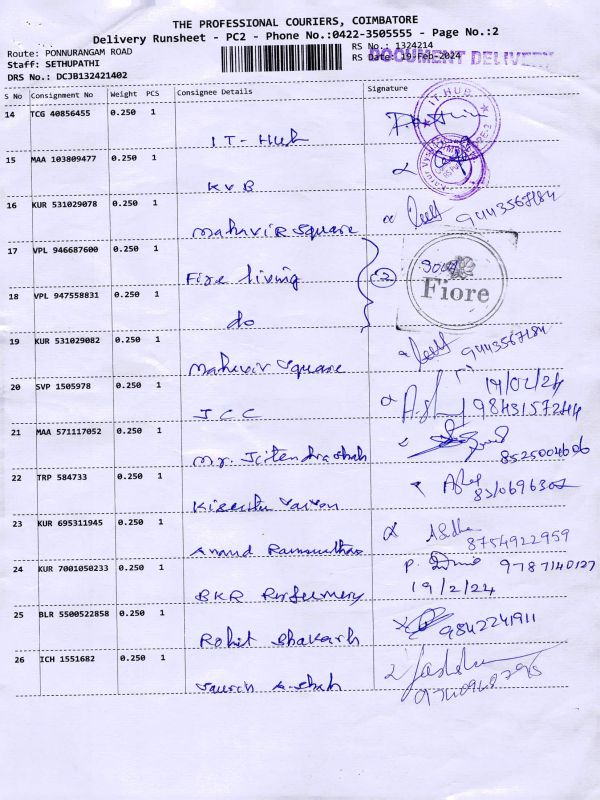 THE PROFESSIONAL COURIERS, COIMBATORE
Delivery Runsheet - PC2 - Phone No.:0422-3505555 - Page No.:2
Route: PONNURANGAM ROAD
RS No.: 1324214
Staff: SETHUPATHI
RS Date: 19-Feb-2024
DOCUMENT DELIVERY
DRS No.: DCJB132421402
S No Consignment No Weight PCS Consignee Details Signature
14 TCG 40856455 0.250 1
IT-Hub
IT HUB
15 MAA 103809477 0.250 1
KVB
16 KUR 531029078 0.250 1
9443567184
Mahavir Square
17 VPL 946687600 0.250 1
Fire living
Fiore
18 VPL 947558831 0.250 1
do
19 KUR 531029082 0.250 1
9443567184
Mahavir Square
20 SVP 1505978 0.250 1
19/02/24
JCC
9843157244
21 MAA 571117052 0.250 1
Mr. Jitendra shah
8525004606
22 TRP 584733 0.250 1
23 KUR 695311945 0.250 1
8754922959
Anand
24 KUR 7001050233 0.250 1
9787140127
19/2/24
BKR Perfumery
25 BLR 5500522858 0.250 1
9842241911
Rohit
26 ICH 1551682 0.250 1